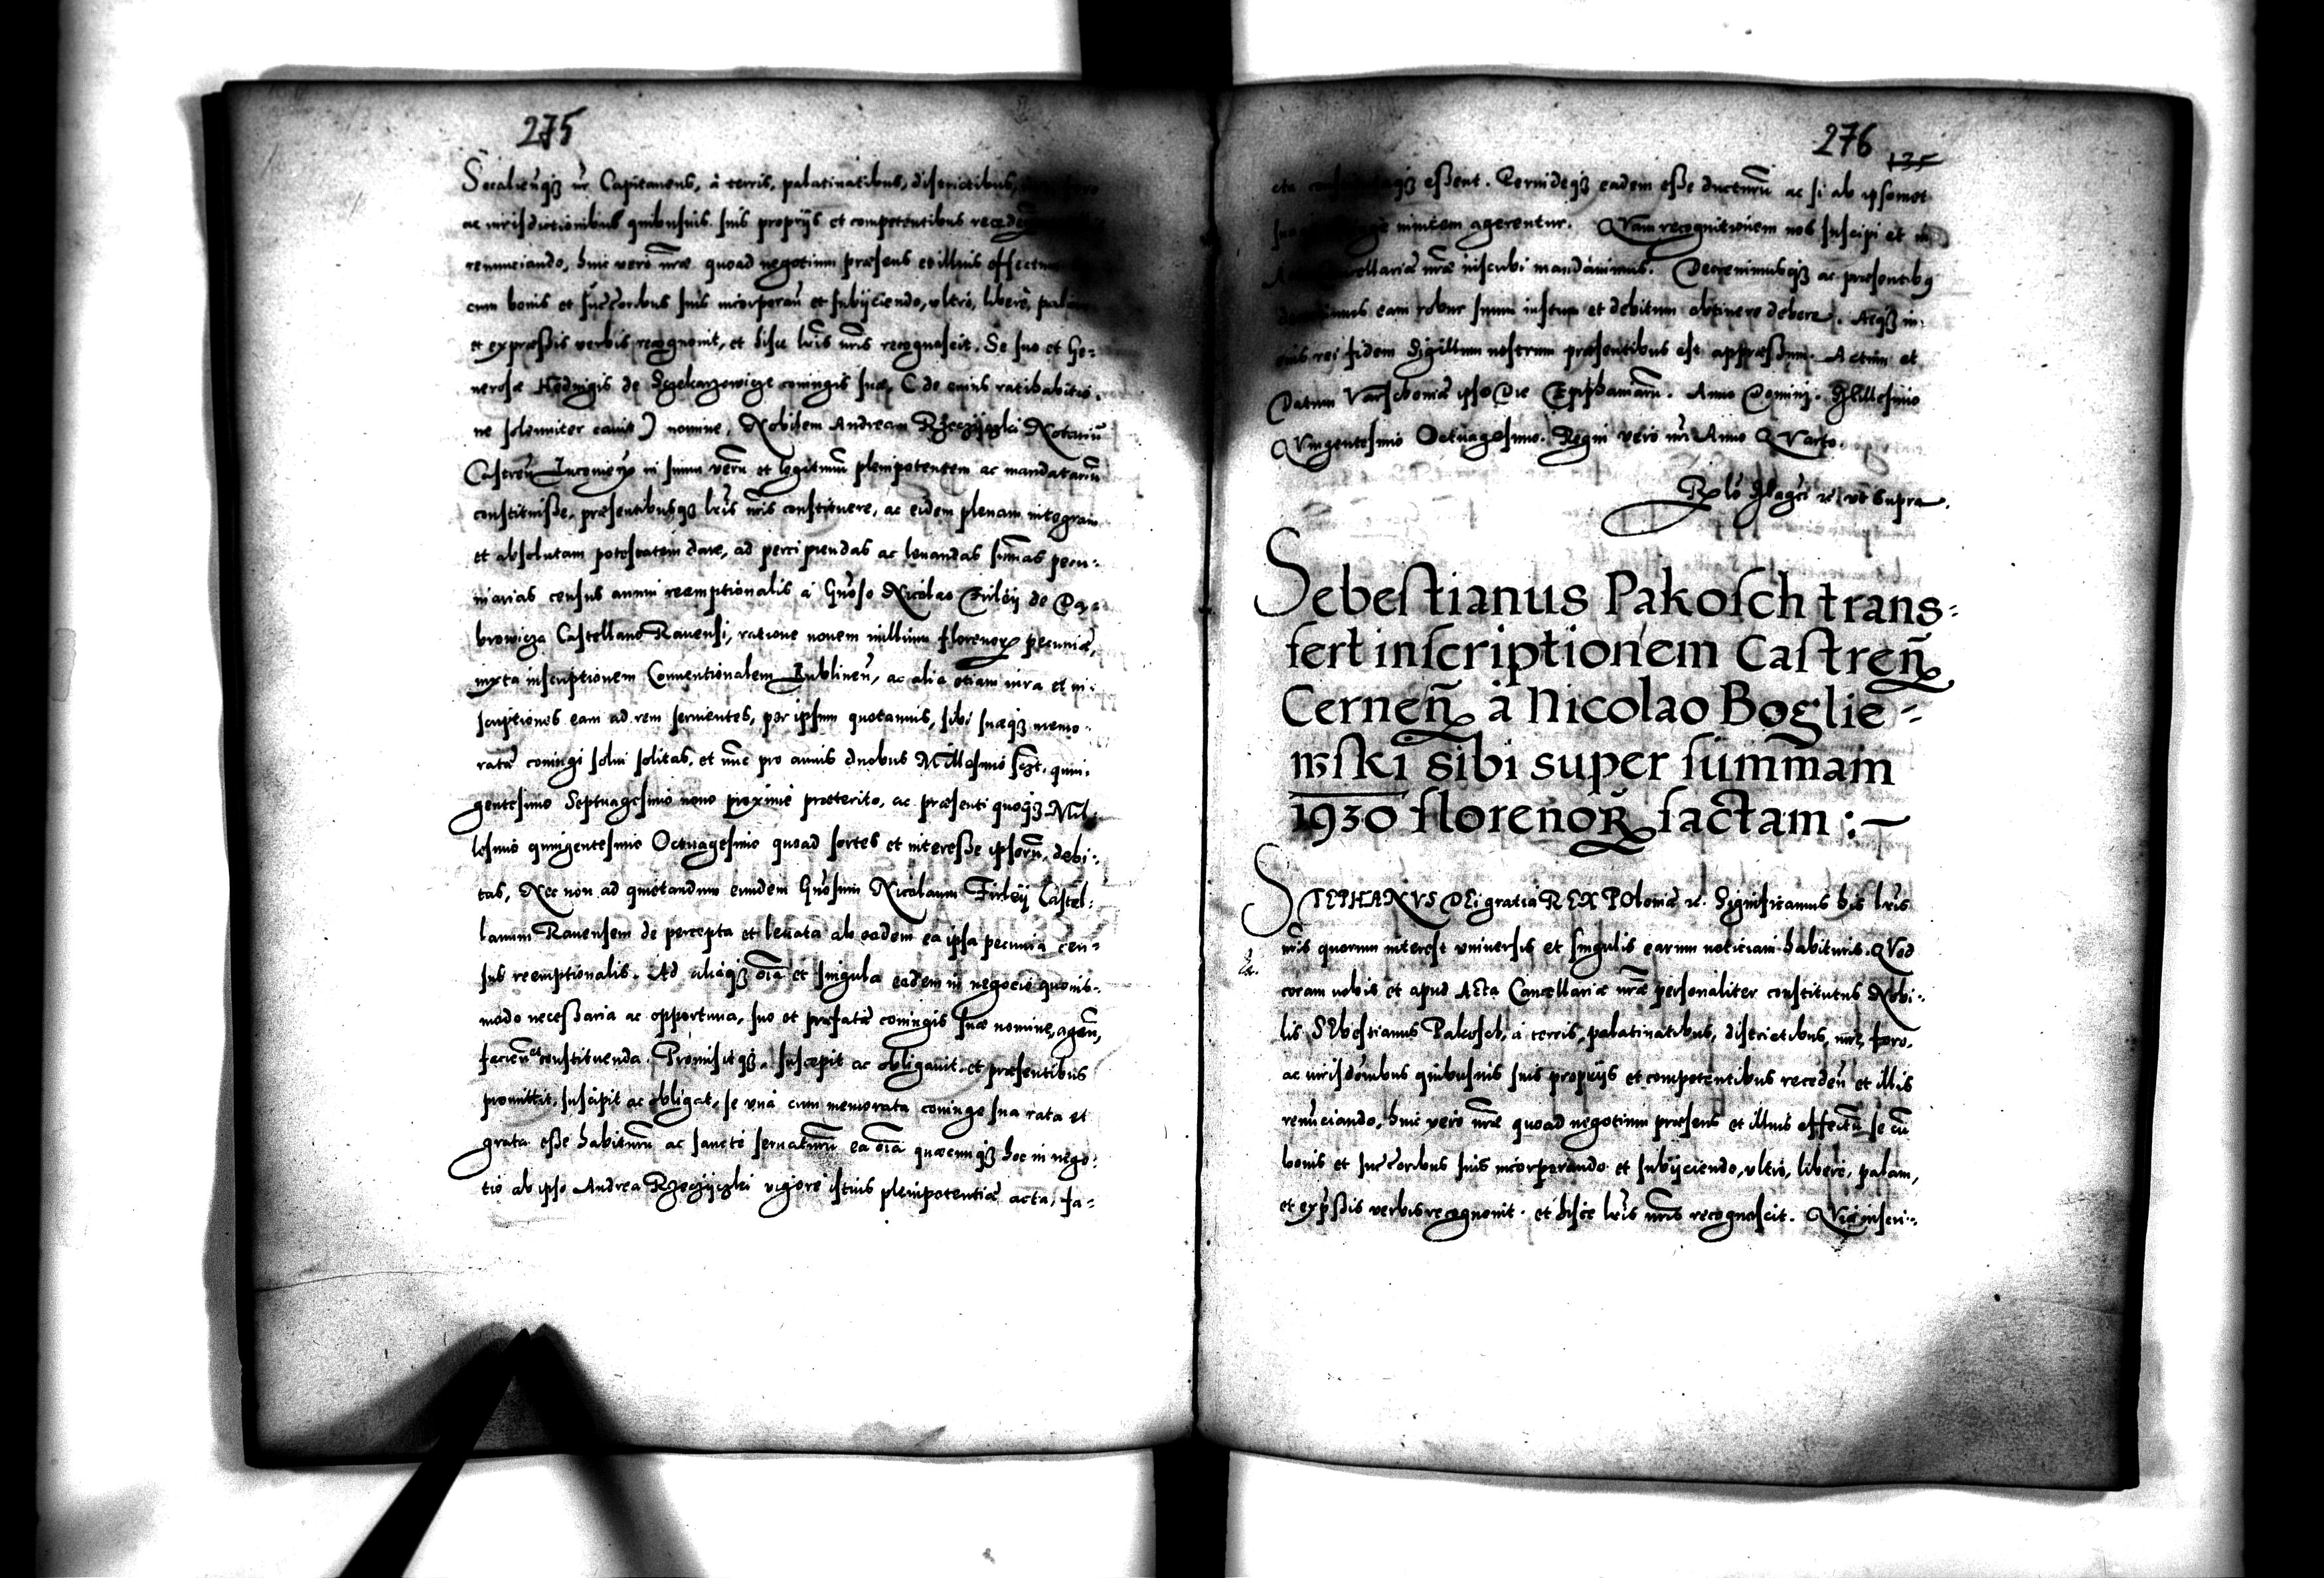 275
Socaliēnqȝ nr̄ Capitaneus, à terris, palatinatibus, districtibus,
ac iurisdictionibus quibusuis suis proprijs et competentibus
renunciando, huic vero nr̄æ quoad negotium præsens et illius
cum bonis et succ̄oribus suis incorporan̄ et subijciendo, vltrò, liberè,
et expræssis verbis recognouit, et hisce lr̄is nr̄is recognoscit. Se suo et Ge=
nerosæ Heduigis de coniugis suæ, (de cuius ratihabitio.
ne solenniter cauit) nomine, Nobilem Andream Rzeczijczki Notariū
Castren̄ in suum verū et legitimū plenipotentem ac mandatariū
constituisse, præsentibusqȝ lr̄is nr̄is constituere, ac eidem plenam integram
et absolutam potestatem dare, ad percipiendas ac leuandas sum̄as pecu:
niarias census annui reemptionalis à Gn̄oso Nicolao Firleij de Da,
browicza Castellano Rauensi, ratione nouem millium florenoꝝ pecuniæ,
iuxta inscriptionem Conuentionalem Lublinen̄, ac alia etiam iura et in:
scriptiones eam ad rem seruientes, per ipsum quotannis, sibi suæqȝ memo:
ratæ coniugi solui solitas, et nūc pro annis duobus Millesimo quin.
gentesimo Septuagesimo nono proximè præterito, ac præsenti quoqȝ Mil:
lesimo quingentesimo Octuagesimo quoad sortes et interesse ipsorū, debi:
tas, Nec non ad quietandum eundem Gn̄osum Nicolaum Firleij Castel:
lanum Rauensem de percepta et leuata ab eodem ea ipsa pecunia cen=
sus reemptionalis. Ad aliaqȝ oīa et singula eodem in negocio quouis=
modo necessaria ac opportuna, suo et præfatæ coniugis suæ nomine, agen̄,
facien̄ et constituenda. Promisitqȝ, suscepit ac obligauit, et præsentibus
promittit, suscipit ac obligat, se vnà cum memorata coniuge sua rata et
grata esse habiturū ac sanctè seruaturū ea oīa quæcunqȝ hoc in nego:
tio ab ipso Andrea Rzeczijczki vigore istius plenipotentiæ acta, fa=
276 135
eta esent. Perindeqȝ eadem esse ducturū ac si ab ipsomet
inuicem agerentur. QVam recognitionem nos suscipi et in
nr̄æ inscribi mandauimus. Decreuimusqȝ ac præsentibꝰ
eam robur suum iustum et debitum obtinere debere. Atqȝ in
cuius rei fidem Sigillum nostrum præsentibus est appræssum. Actum et
Datum Varschouiæ ipso Die Epiphaniarū. Anno Domini. Millesimo
QVingentesimo Octuagesimo. Regni vero nr̄i Anno QVarto.
vt Supra.
Sebestianus Pakosch trans=
fert inscriptionem Castren̄
Cernen̄ à Nicolao Boglie =
wski sibi super summam
1930 florenoꝝ factam :—
STEPHANVS DEi gratia REX POloniæ ꝛc. Significamus his lr̄is
nr̄is quorum interest vniuersis et singulis earum noticiam habituris. QVod
coram nobis et apud Acta Cancellariæ nr̄æ personaliter constitutus Nobi:
lis SEbestianus Pakosch, à terris, palatinatibus, districtibus, foro.
ac iurisd̄onibus quibusuis suis proprijs et competentibus receden̄ et illis
renunciando, huic vero nr̄æ quoad negotium præsens et illius effectū se cū
bonis et succ̄oribus suis incorporando et subijciendo, vltrò, liberè, palam,
et exp̄ssis verbis recognouit. et hisce lr̄is nr̄is recognoscit. inscri: